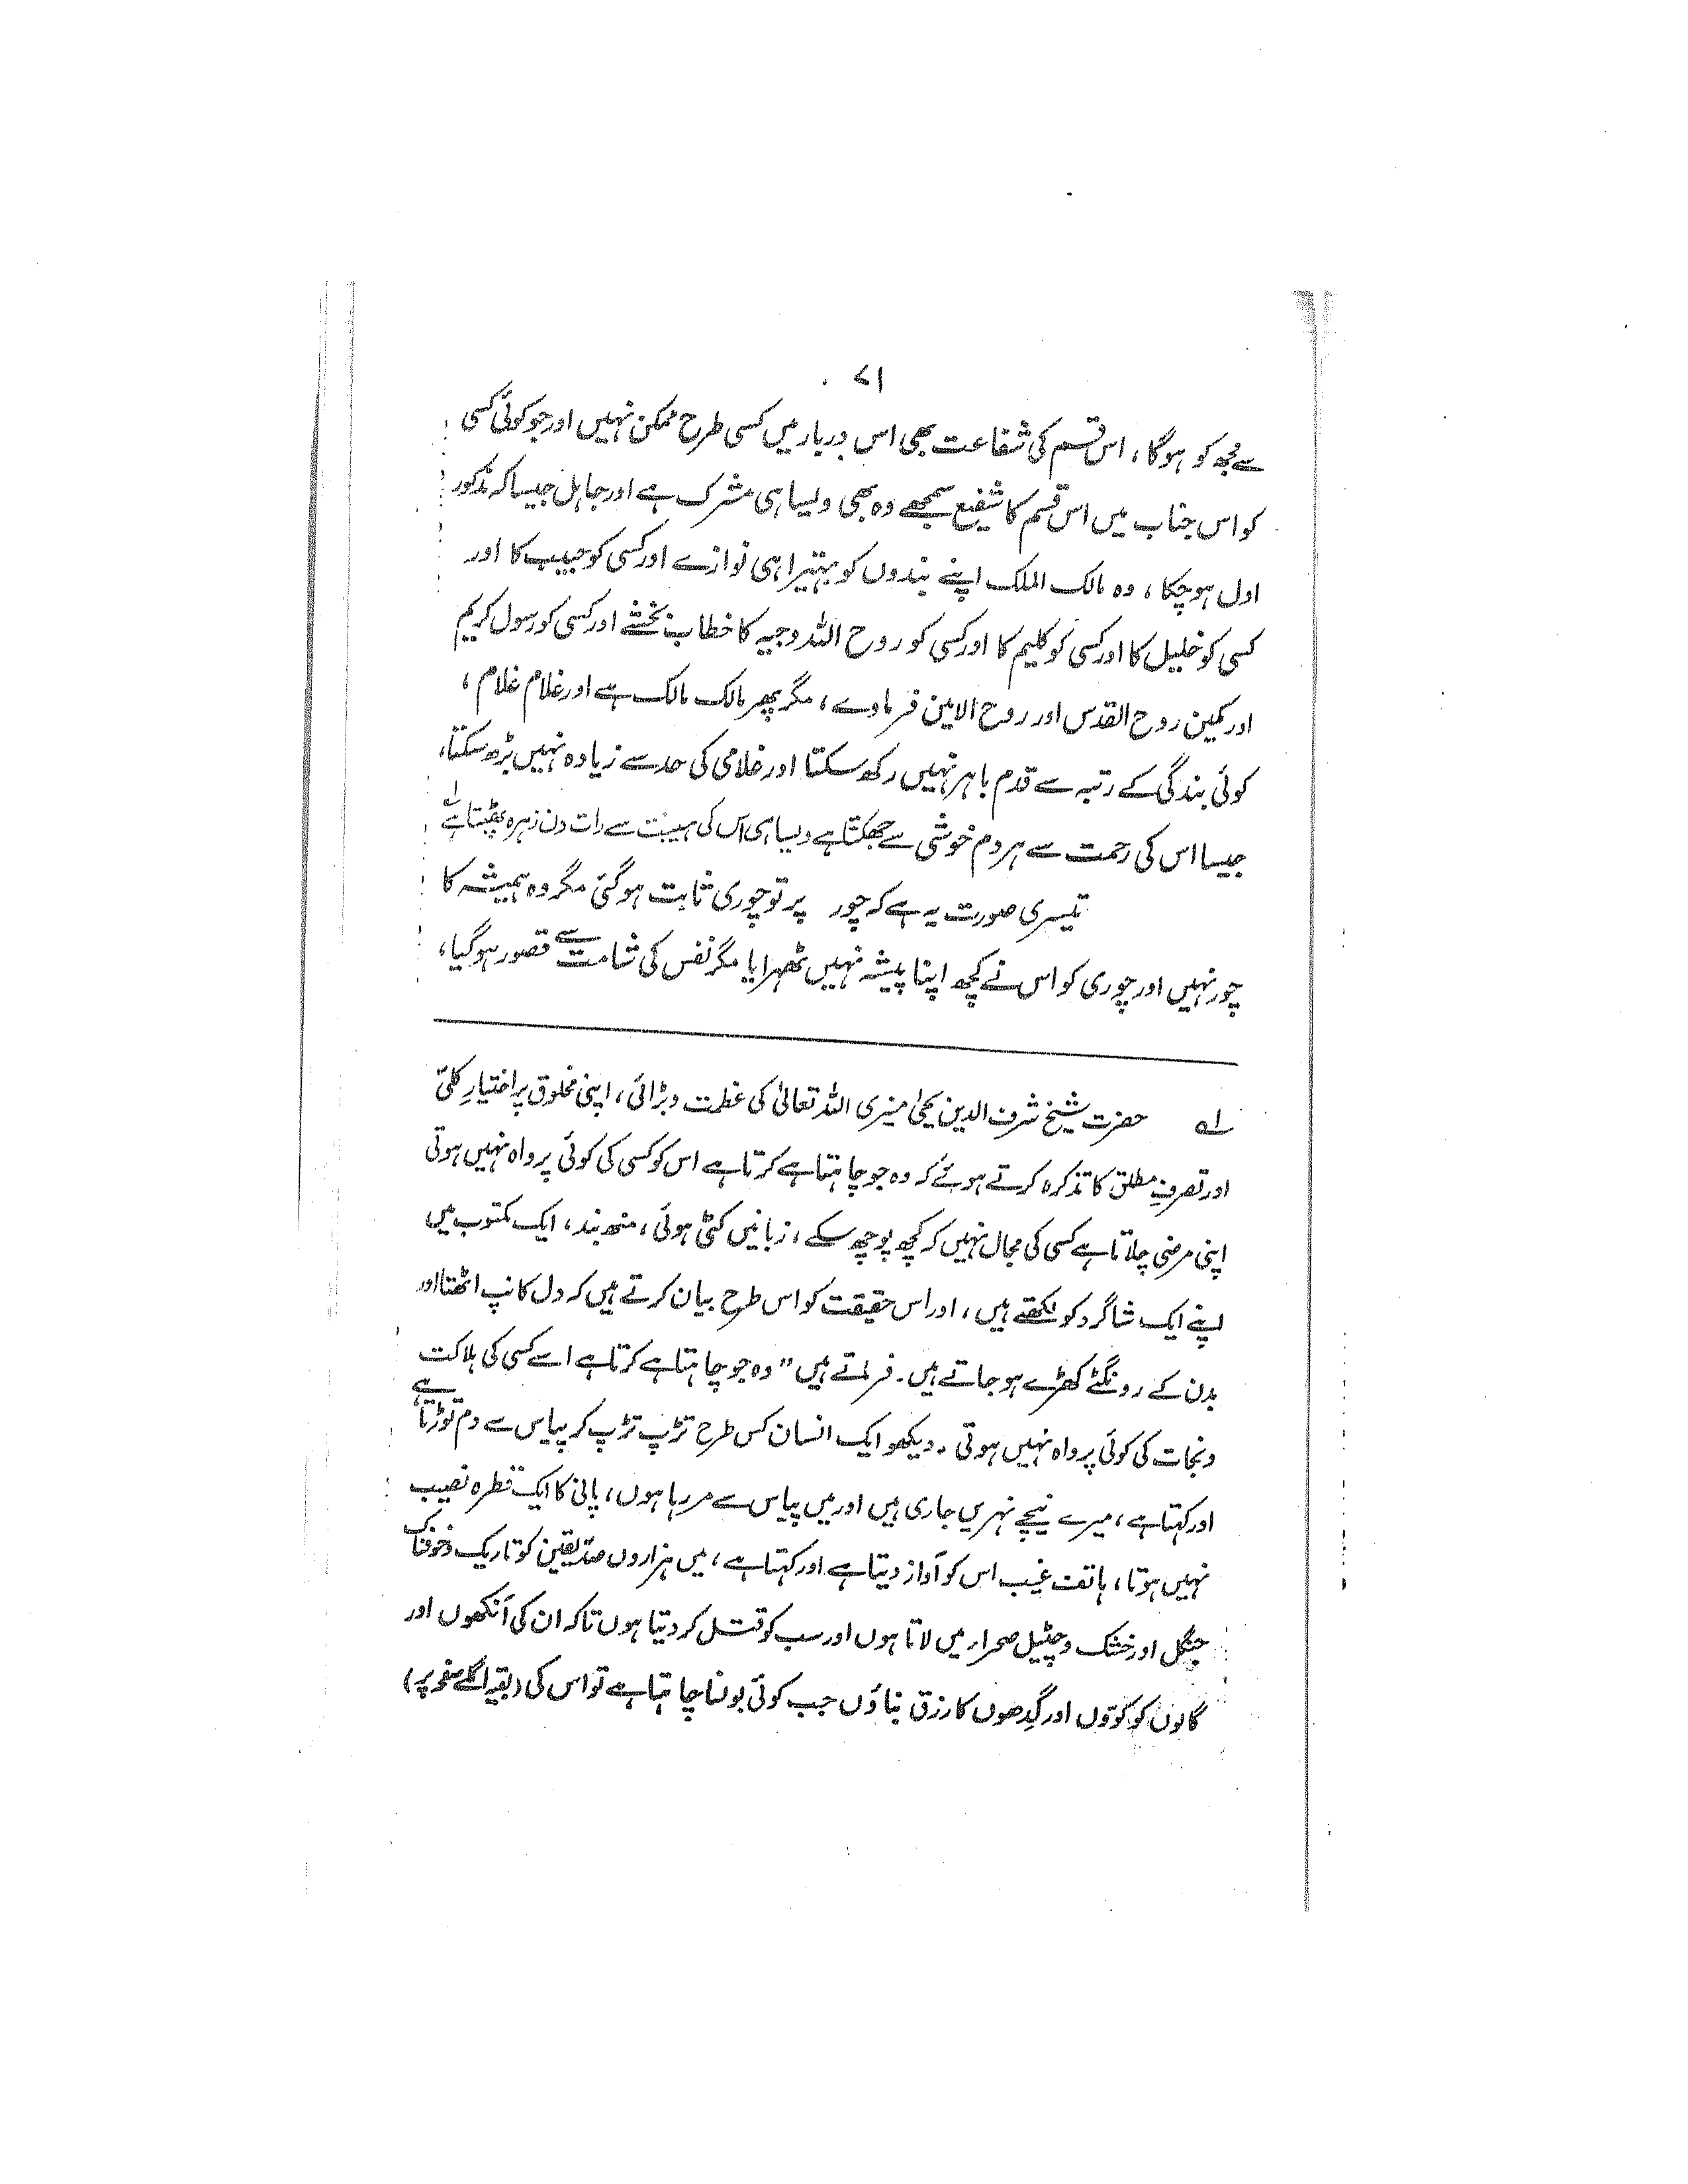 ۷۱
سے مجھ کو ہوگا، اس قسم کی شفاعت بھی اس دربار میں کسی طرح ممکن نہیں اور جو کوئی کسی
کو اس جناب میں اس قسم کا شفیع سمجھے وہ بھی ویسا ہی مشرک ہے اور جاہل جیسا کہ مذکور
اول ہو چکا، وہ مالک الملک اپنے بندوں کو بہتیرا ہی نوازے اور کسی کو حبیب کا اور
کسی کو خلیل کا اور کسی کو کلیم کا اور کسی کو روح اللہ وجیہ کا خطاب بخشے اور کسی کو رسول کریم
اور مکین روح القدس اور روح الامین فرماوے، مگر پھر مالک مالک ہے اور غلام غلام،
کوئی بندگی کے رتبہ سے قدم باہر نہیں رکھ سکتا اور غلامی کی حد سے زیادہ نہیں بڑھ سکتا،
جیسا اس کی رحمت سے ہر دم خوشی سے جھکتا ہے ویسا ہی اس کی ہیبت سے رات دن زہرہ پھٹتا ہے ؎۱
تیسری صورت یہ ہے کہ چور پر تو چوری ثابت ہوگئی مگر وہ ہمیشہ کا
چور نہیں اور چوری کو اس نے کچھ اپنا پیشہ نہیں ٹھہرایا مگر نفس کی شامت سے قصور ہوگیا،
لہ حضرت شیخ شرف الدین یحییٰ منیری اللہ تعالیٰ کی عظمت و بڑائی، اپنی مخلوق پر اختیارِ کلّی
اور تصرفِ مطلق کا تذکرہ کرتے ہوئے کہ وہ جو چاہتا ہے کرتا ہے اس کو کسی کی کوئی پرواہ نہیں ہوتی
اپنی مرضی چلاتا ہے کسی کی مجال نہیں کہ کچھ پوچھ سکے، زبانیں کٹی ہوئی، منھ بند، ایک مکتوب میں
اپنے ایک شاگرد کو لکھتے ہیں، اور اس حقیقت کو اس طرح بیان کرتے ہیں کہ دل کانپ اٹھتا اور
بدن کے رونگٹے کھڑے ہو جاتے ہیں۔ فرماتے ہیں ”وہ جو چاہتا ہے کرتا ہے اسے کسی کی ہلاکت
و نجات کی کوئی پرواہ نہیں ہوتی۔ دیکھو ایک انسان کس طرح تڑپ تڑپ کر پیاس سے دم توڑتا ہے
اور کہتا ہے، میرے نیچے نہریں جاری ہیں اور میں پیاس سے مر رہا ہوں، پانی کا ایک قطرہ نصیب
نہیں ہوتا، ہاتف غیب اس کو آواز دیتا ہے اور کہتا ہے، میں ہزاروں صدّیقین کو تاریک و خوفناک
جنگل اور خشک و چٹیل صحراء میں لاتا ہوں اور سب کو قتل کر دیتا ہوں تاکہ ان کی آنکھوں اور
گالوں کو کوّوں اور گِدھوں کا رزق بناؤں جب کوئی بولنا چاہتا ہے تو اس کی (بقیہ اگلے صفحہ پر)